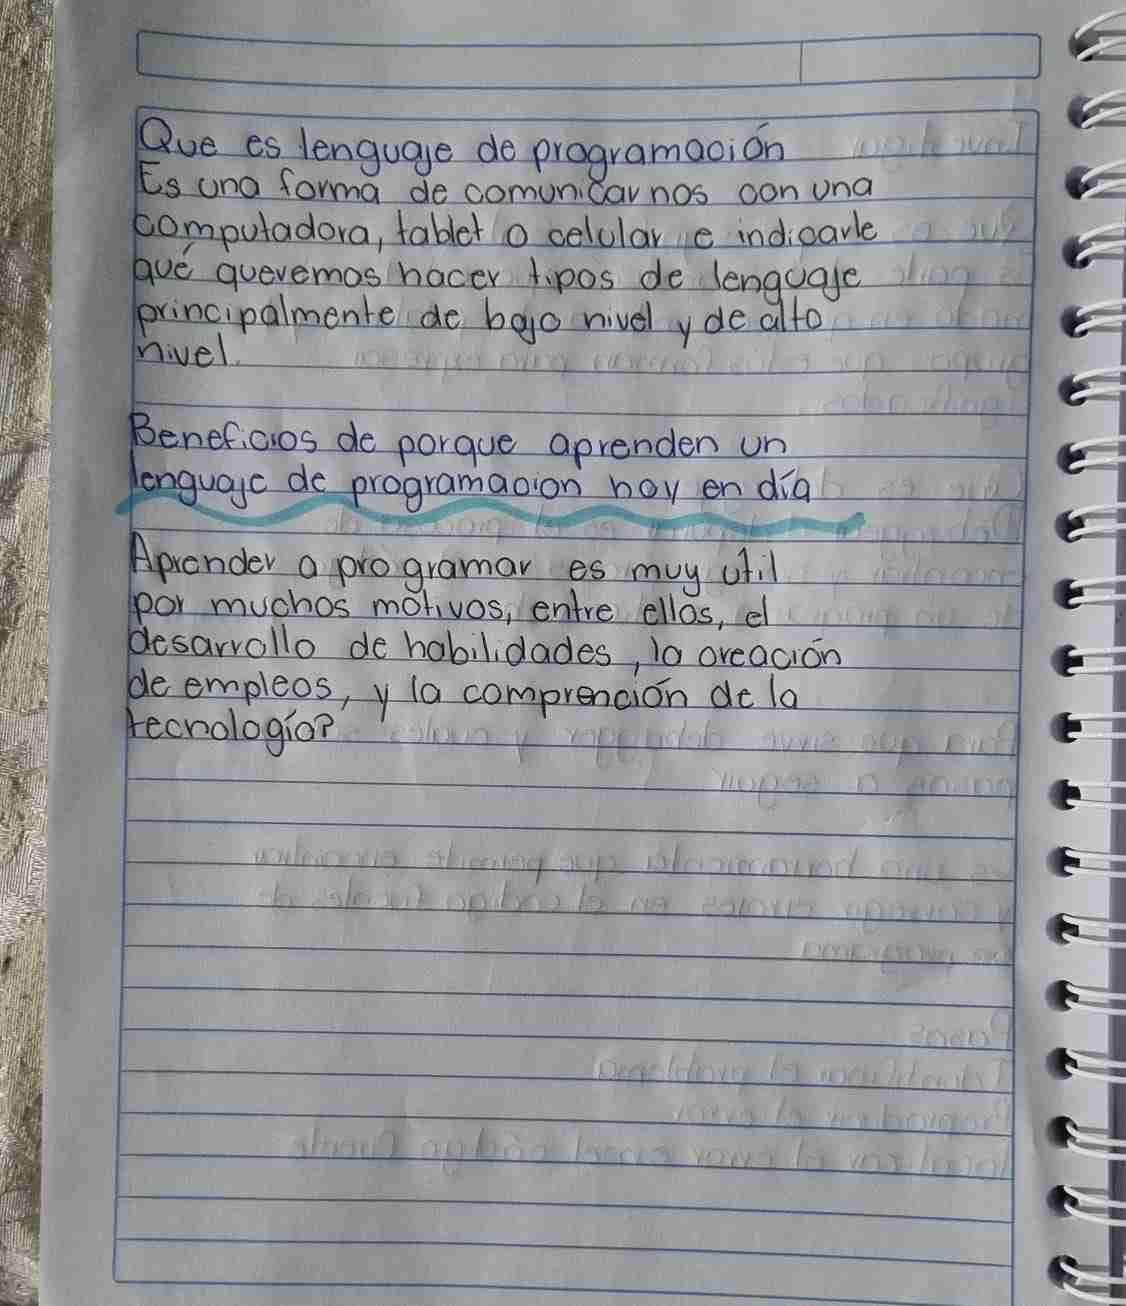 Que es lenguaje de programación
Es una forma de comunicarnos con una
computadora, tablet o celular e indicarle
qué queremos hacer tipos de lenguaje
principalmente de bajo nivel y de alto
nivel.
Beneficios de porque aprenden un
lenguaje de programacion hoy en día
Aprender a programar es muy útil
por muchos motivos, entre ellos, el
desarrollo de habilidades, la creación
de empleos, y la comprención de la
tecnología?